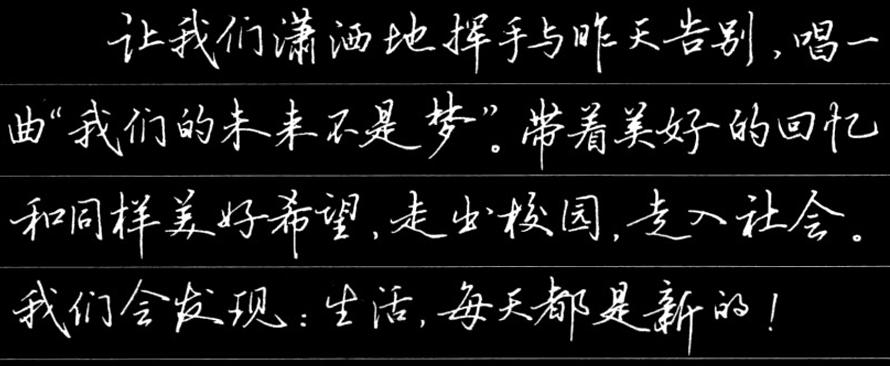 让我们潇洒地挥手与昨天告别,唱一
曲“我们的未来不是梦”。带着美好的回忆
和同样美好希望,走出校园,走入社会。
我们会发现:生活,每天都是新的!